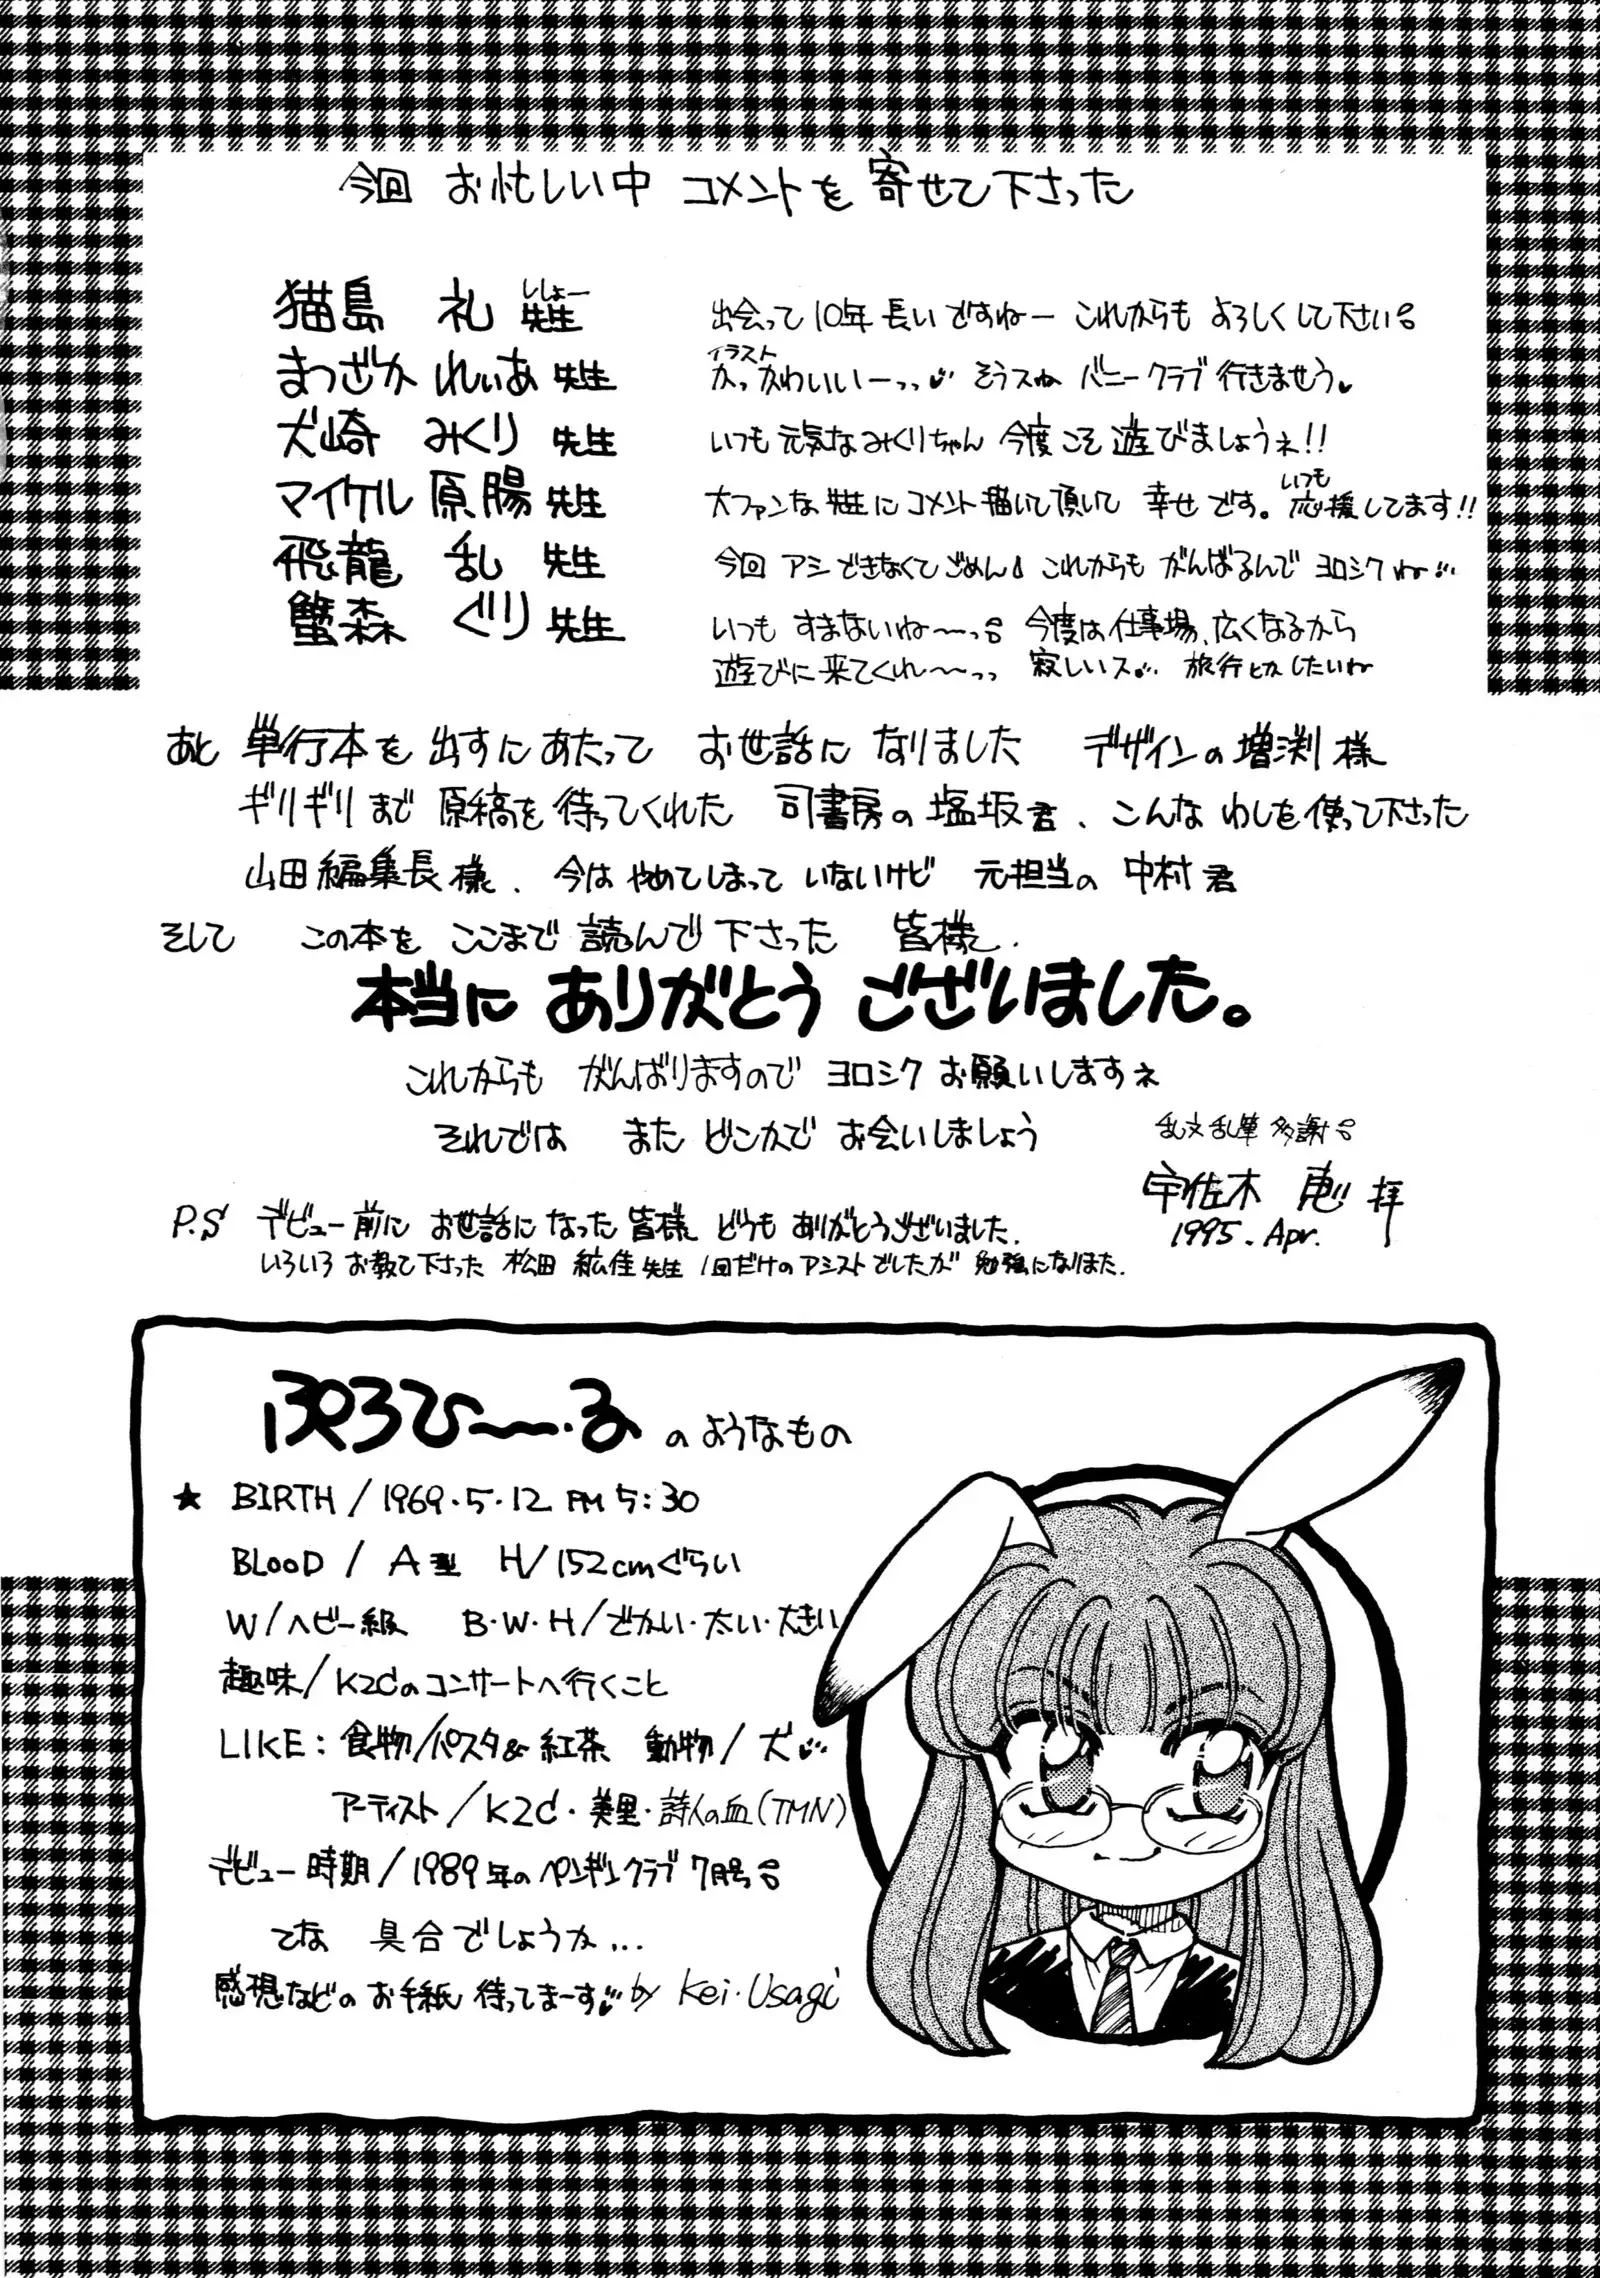 今回 お忙しい中 コメントを 寄せて下さった
猫島 礼 先生 ししょー 出会って 10年 長いですねー これからも よろしくして下さい。
まつざか れぃあ 先生 イラスト かっかわいいーっっ そうスね バニークラブ 行きませう
犬崎 みくり 先生 いつも 元気なみくりちゃん 今度こそ 遊びましょうネ!!
マイケル 原腸 先生 大ファンな 先生に コメント描いて頂いて 幸せです。いつも 応援してます!!
飛龍 乱 先生 今回 アシできなくてごめん これからも がんばるんで ヨロシクね
蟹森 ぐり 先生 いつも すまないね〜〜っ 今度は仕事場、広くなるから
遊びに来てくれ〜〜っっ 寂しいス 旅行とかしたいね
あと 単行本を 出すにあたって お世話に なりました デザインの増渕様
ギリギリまで 原稿を 待ってくれた 司書房の塩坂君、こんな わしを使って下さった
山田編集長様、今は やめてしまって いないけど 元担当の 中村君
そして この本を ここまで 読んで 下さった 皆様、
本当に ありがとう ございました。
これからも がんばりますので ヨロシク お願いしますネ
それでは また どこかで お会いしましょう
乱文乱筆 多謝
宇佐木 恵 拝
1995. Apr.
P.S デビュー前に お世話になった皆様 どうも ありがとうございました.
いろいろ お教え下さった 松田 紘佳先生 1回だけの アシストでしたが 勉強になりました.
ぷろひ〜〜・る のようなもの
★ BIRTH / 1969・5・12 PM 5:30
BLOOD / A型 H/152cmぐらい
W/ヘビー級 B・W・H/でかい・太い・大きい
趣味/K2Cのコンサートへ行くこと
LIKE: 食物/パスタ&紅茶 動物/犬
アーティスト/K2C・美里・詩人の血(TMN)
デビュー時期/1989年のペンギンクラブ7月号
てな 具合でしょうか...
感想などの お手紙 待ってまーす by Kei・Usagi